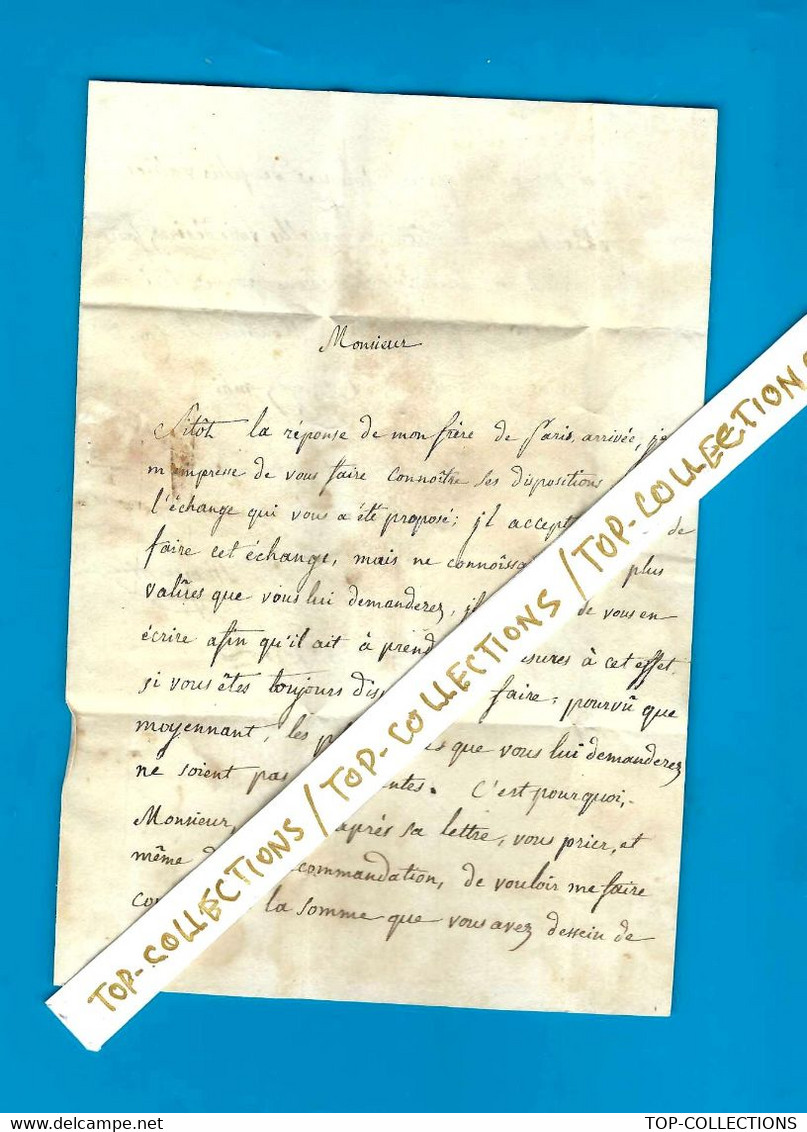 Monsieur
Sitôt la réponse de mon frère de Paris, arrivée, je
m'empresse de vous faire connoître ses dispositions
l'échange qui vous a été proposé; jl accept de
faire cet échange, mais ne connoissa plus
valües que vous lui demanderez, jl de vous en
écrire afin qu'il ait à prend sures à cet effet.
si vous êtes toujours dis faire; pourvû que
moyennant, les p es que vous lui demanderez
ne soient pas ntes. C'est pourquoi,
Monsieur, après sa lettre, vous prier, et
même d commandation, de vouloir me faire
co la somme que vous avez dessein de
TOP-COLLECTIONS / TOP-COLLECTIONS / TOP-COLLECTIONS
TOP-COLLECTIONS